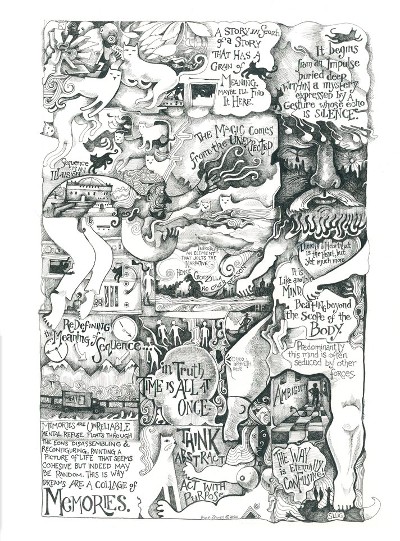 A STORY IN SEARCH
of a STORY
THAT HAS A
GRAIN of
MEANING.
MAYBE I'LL FIND
IT HERE.
It begins
from an Impulse
buried deep
WITHIN a mystery
expressed by a
Gesture whose echo
is SILENCE.
THE MAGIC COMES
from the UNEXPECTED
Sequence
ILLUSION
HOPE
the heart, but
yet much more.
It is
Like a
MIND
Beating beyond
the Scope of the
BODY.
Predominantly
this mind is often
seduced by other
FORCES.
ReDefining
the Meaning of Sequence
in Truth
TIME IS ALL AT
ONCE
AMBIGUITY
MEMORIES ARE UNRELIABLE
MENTAL REFUSE FLOATS THROUGH
THE EONS DISASSEMBLING &
RECONFIGURING, PAINTING A
PICTURE OF LIFE THAT SEEMS
COHESIVE BUT INDEED MAY
BE RANDOM. THIS IS WAY
DREAMS ARE A COLLAGE of
MEMORIES.
THINK
ABSTRACT
ACT WITH
PURPOSE
THE WAY
is ETERNALLY
CONFUSING